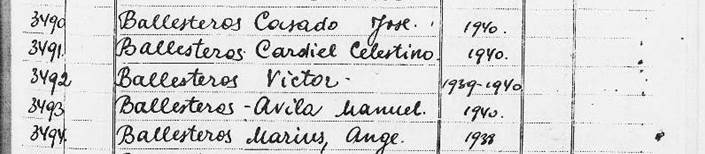 3490 Ballesteros Casado Jose. 1940.
3491. Ballesteros Cardiel Celestino. 1940.
3492 Ballesteros Victor - 1939-1940
3493 Ballesteros - Avila Manuel. 1940.
3494 Ballesteros Marius, Ange. 1938